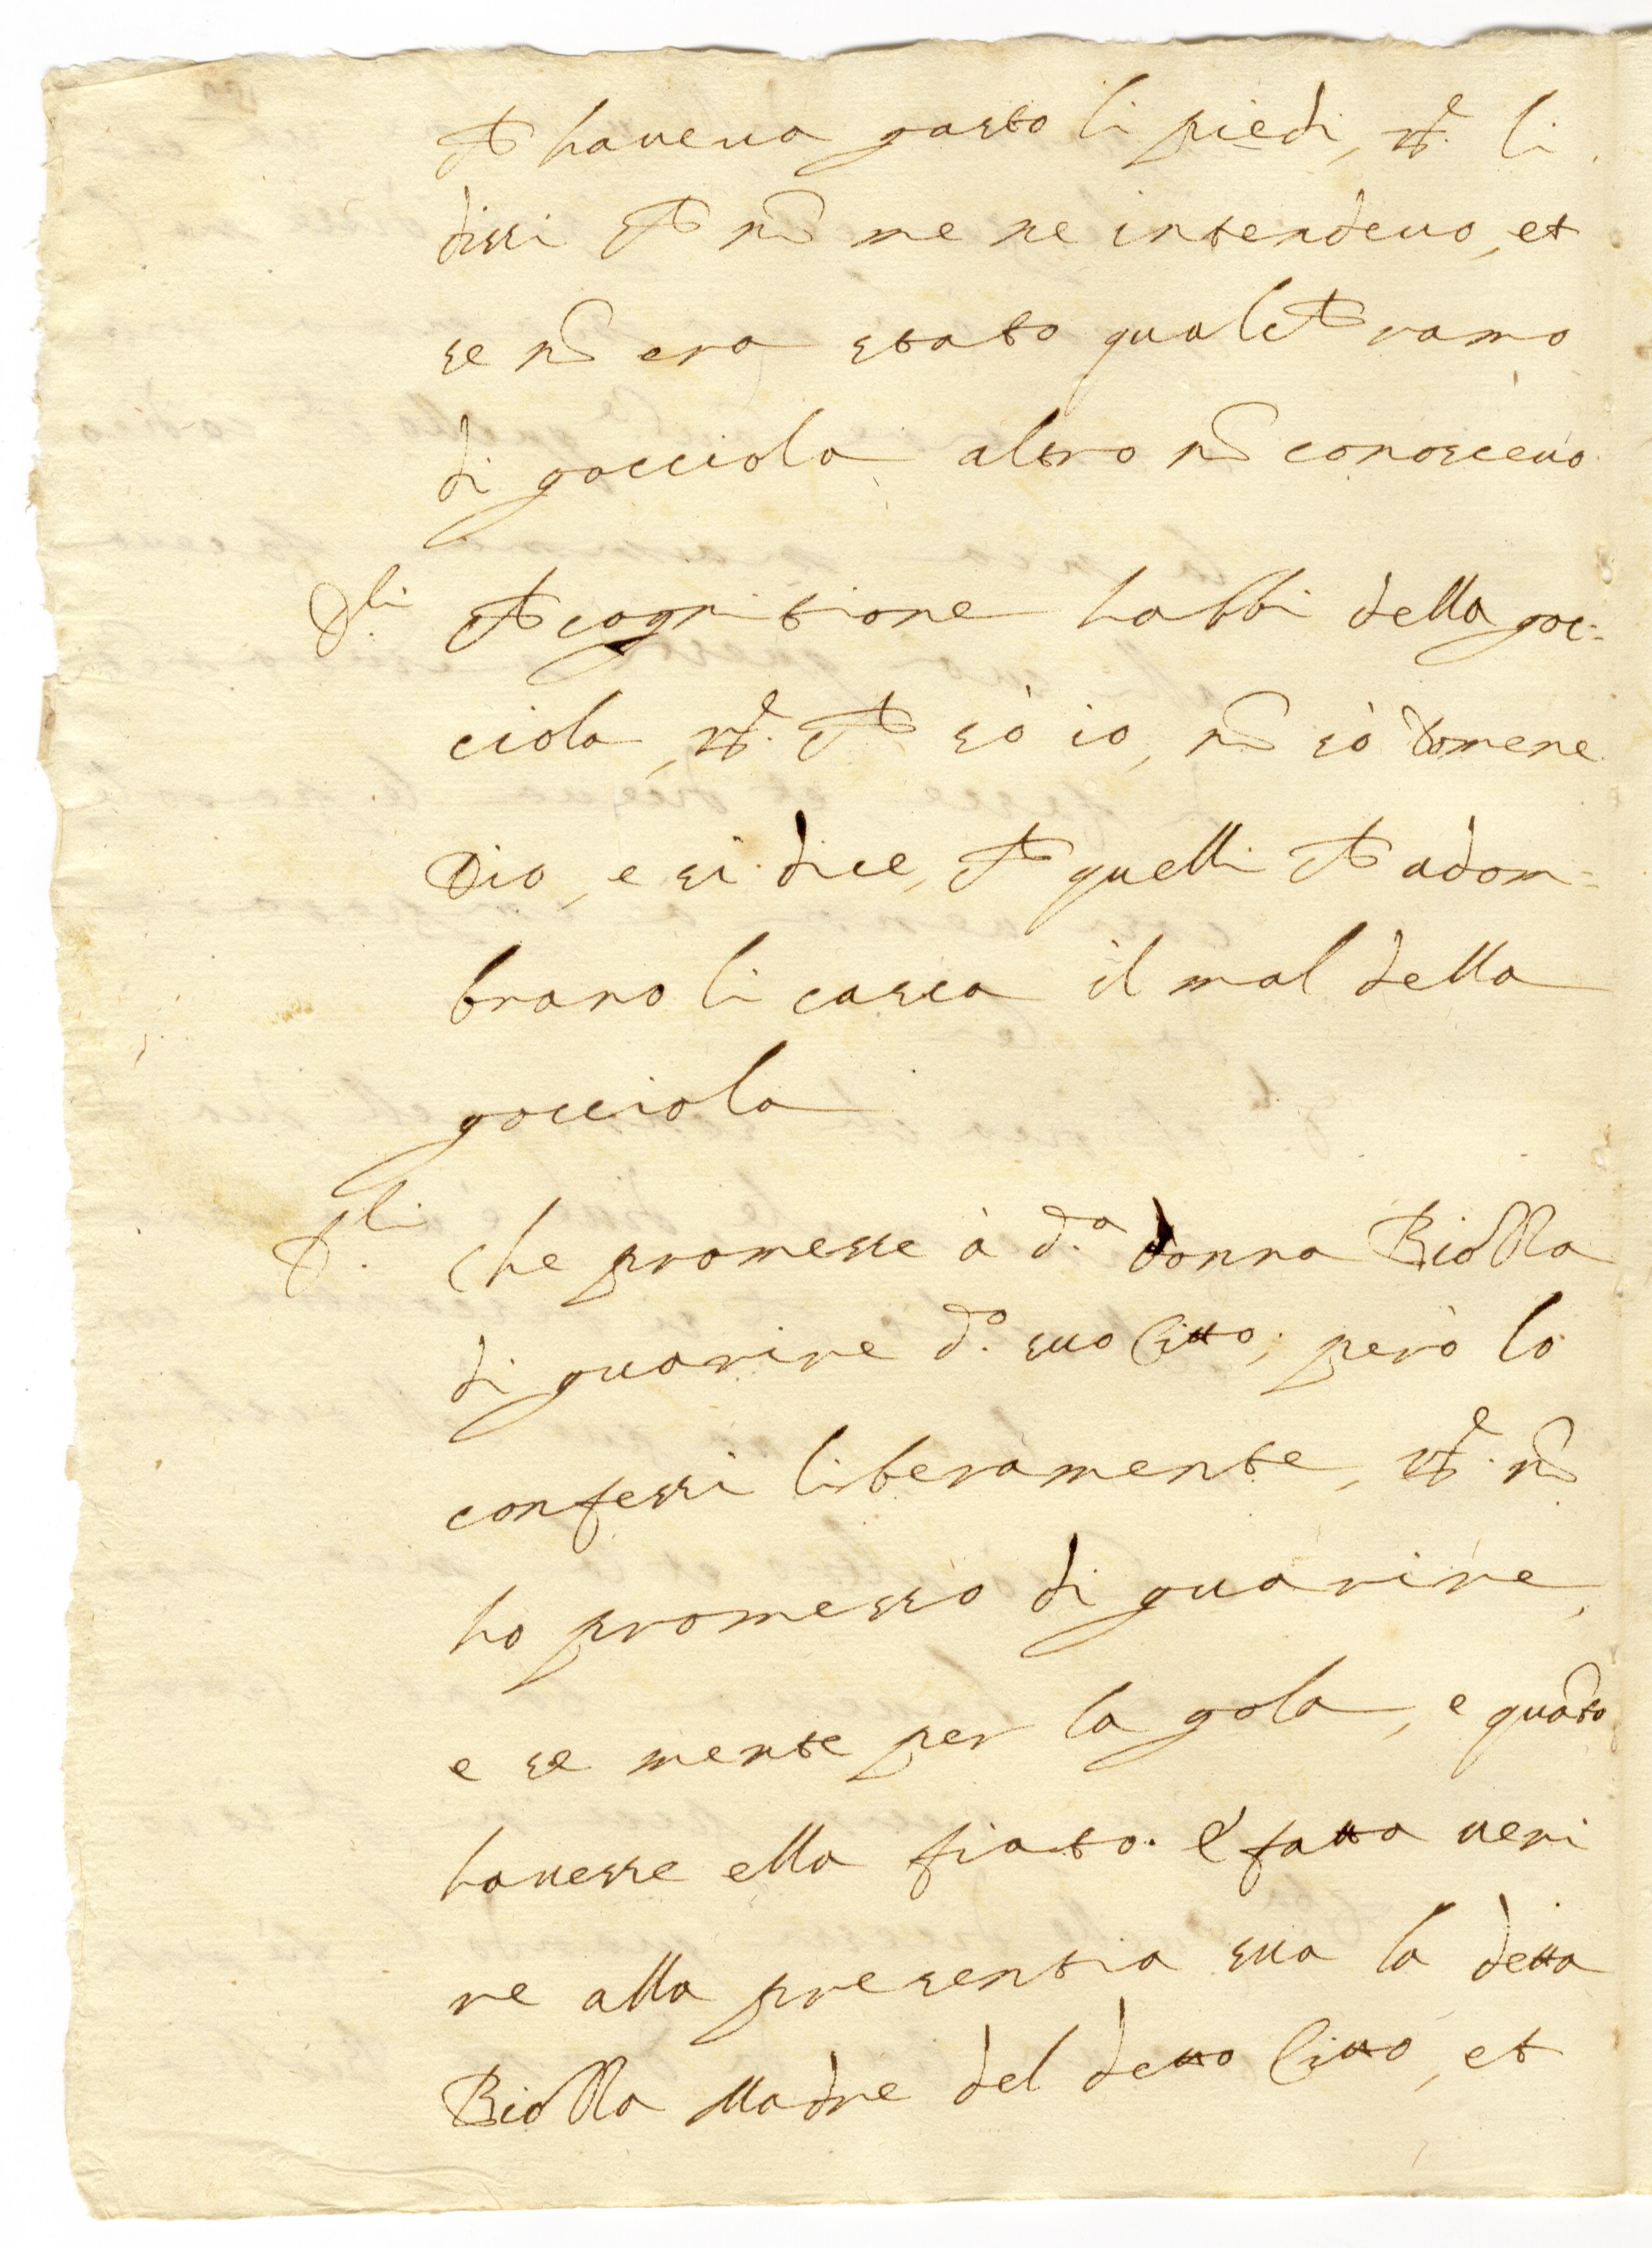 che haveva guasto li piedi, r.e li
dissi che nō me ne intendevo, et
se nō era stato qualche ramo
di gocciola altro nō conoscevo
D.li che cognitione habbi della goc=
ciola, r.e che sò io, nō sò domene
Dio, e si dice, che quelli che adom=
brano li casca il mal della
gocciola
D.li che promesse à d.a donna
di guarire d.o suo Citto, però lo
confessi liberamente, r.e nō
ho promesso di guarire,
e se mente per la gola, e quāto
havesse ella fiato. E fatta veni
re alla presentia sua la detta
Madre del detto Citto, et